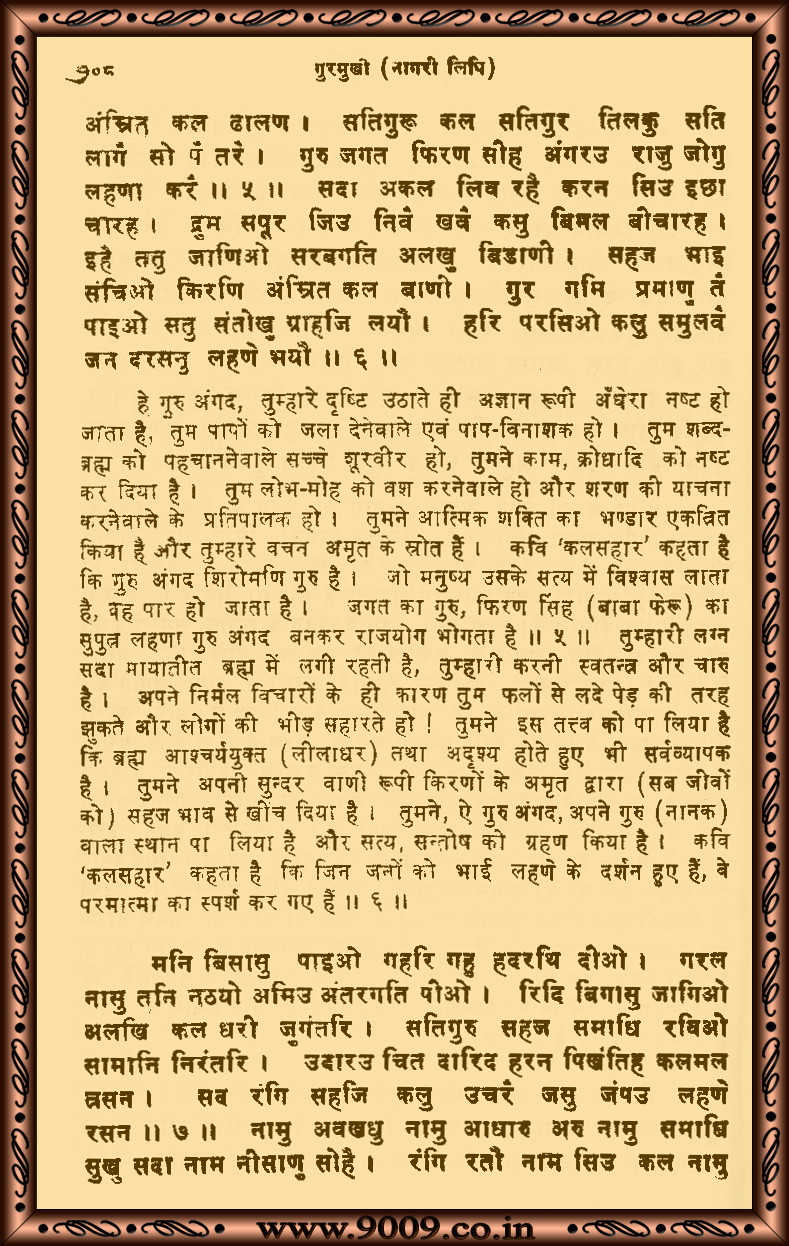 ७०८ गुरमुखी (नागरी लिपि)
अंम्रित कल ढालण । सतिगुरू कल सतिगुर तिलकु सति
लागै सो पै तरै । गुरु जगत फिरण सीह अंगरउ राजु जोगु
लहणा करै ॥ ५ ॥ सदा अकल लिव रहै करन सिउ इछा
चारह । द्रुम सपूर जिउ निवै खवै कसु बिमल बीचारह ।
इहै ततु जाणिओ सरबगति अलखु बिडाणी । सहज भाइ
संचिओ किरणि अंम्रित कल बाणी । गुर गमि प्रमाणु तै
पाइओ सतु संतोखु ग्राहजि लयौ । हरि परसिओ कलु समुलवै
जन दरसनु लहणे भयौ ॥ ६ ॥
हे गुरु अंगद, तुम्हारे दृष्टि उठाते ही अज्ञान रूपी अँधेरा नष्ट हो
जाता है, तुम पापों को जला देनेवाले एवं पाप-विनाशक हो । तुम शब्द-
ब्रह्म को पहचाननेवाले सच्चे शूरवीर हो, तुमने काम, क्रोधादि को नष्ट
कर दिया है । तुम लोभ-मोह को वश करनेवाले हो और शरण की याचना
करनेवाले के प्रतिपालक हो । तुमने आत्मिक शक्ति का भण्डार एकत्रित
किया है और तुम्हारे वचन अमृत के स्रोत हैं । कवि ‘कलसहार’ कहता है
कि गुरु अंगद शिरोमणि गुरु है । जो मनुष्य उसके सत्य में विश्वास लाता
है, वह पार हो जाता है । जगत का गुरु, फिरण सिंह (बाबा फेरू) का
सुपुत्र लहणा गुरु अंगद बनकर राजयोग भोगता है ॥ ५ ॥ तुम्हारी लग्न
सदा मायातीत ब्रह्म में लगी रहती है, तुम्हारी करनी स्वतन्त्र और चारु
है । अपने निर्मल विचारों के ही कारण तुम फलों से लदे पेड़ की तरह
झुकते और लोगों की भीड़ सहारते हो ! तुमने इस तत्त्व को पा लिया है
कि ब्रह्म आश्चर्ययुक्त (लीलाधर) तथा अदृश्य होते हुए भी सर्वव्यापक
है । तुमने अपनी सुन्दर वाणी रूपी किरणों के अमृत द्वारा (सब जीवों
को) सहज भाव से खींच दिया है । तुमने, ऐ गुरु अंगद, अपने गुरु (नानक)
वाला स्थान पा लिया है और सत्य, सन्तोष को ग्रहण किया है । कवि
‘कलसहार’ कहता है कि जिन जनों को भाई लहणे के दर्शन हुए हैं, वे
परमात्मा का स्पर्श कर गए हैं ॥ ६ ॥
मनि बिसासु पाइओ गहरि गहु हदरथि दीओ । गरल
नासु तनि नठयो अमिउ अंतरगति पीओ । रिदि बिगासु जागिओ
अलखि कल धरी जुगंतरि । सतिगुरु सहज समाधि रविओ
सामानि निरंतरि । उदारउ चित दारिद हरन पिखंतिह कलमल
त्रसन । सद रंगि सहजि कलु उचरै जसु जंपउ लहणे
रसन ॥ ७ ॥ नामु अवखधु नामु आधारु अरु नामु समाधि
सुखु सदा नाम नीसाणु सोहै । रंगि रतौ नाम सिउ कल नामु
www.9009.co.in